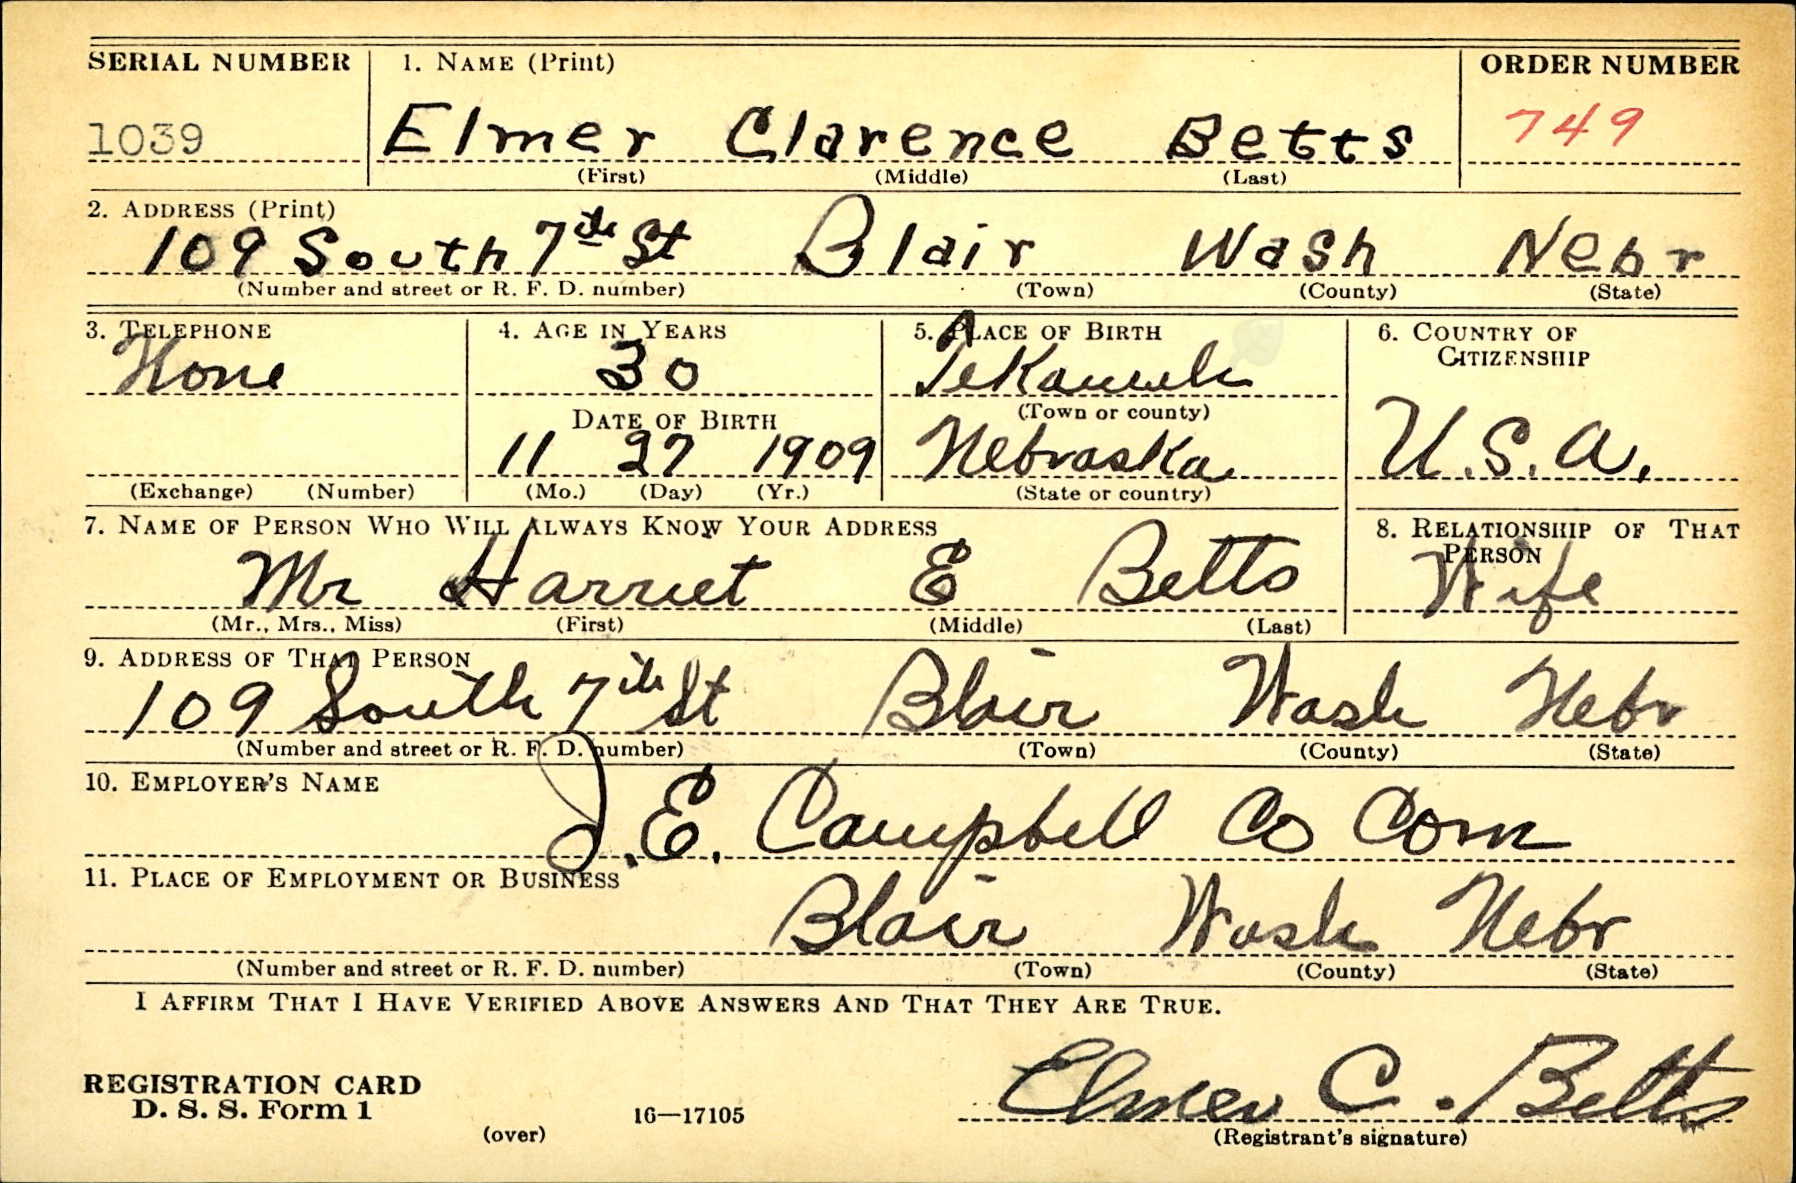 SERIAL NUMBER 1. NAME (Print) ORDER NUMBER
1039 Elmer Clarence Betts 749
(First) (Middle) (Last)
2. ADDRESS (Print)
109 South 7th St Blair Wash Nebr
(Number and street or R. F. D. number) (Town) (County) (State)
3. TELEPHONE 4. AGE IN YEARS 5. PLACE OF BIRTH 6. COUNTRY OF CITIZENSHIP
None 30 Tekamah
DATE OF BIRTH (Town or county)
11 27 1909 Nebraska U.S.A.
(Exchange) (Number) (Mo.) (Day) (Yr.) (State or country)
7. NAME OF PERSON WHO WILL ALWAYS KNOW YOUR ADDRESS 8. RELATIONSHIP OF THAT PERSON
Mr Harriet E Betts Wife
(Mr., Mrs., Miss) (First) (Middle) (Last)
9. ADDRESS OF THAT PERSON
109 South 7th St Blair Wash Nebr
(Number and street or R. F. D. number) (Town) (County) (State)
10. EMPLOYER'S NAME
J.E. Campbell Co Com
11. PLACE OF EMPLOYMENT OR BUSINESS
Blair Wash Nebr
(Number and street or R. F. D. number) (Town) (County) (State)
I AFFIRM THAT I HAVE VERIFIED ABOVE ANSWERS AND THAT THEY ARE TRUE.
REGISTRATION CARD
D. S. S. Form 1 16—17105 Elmer C. Betts
(over) (Registrant's signature)